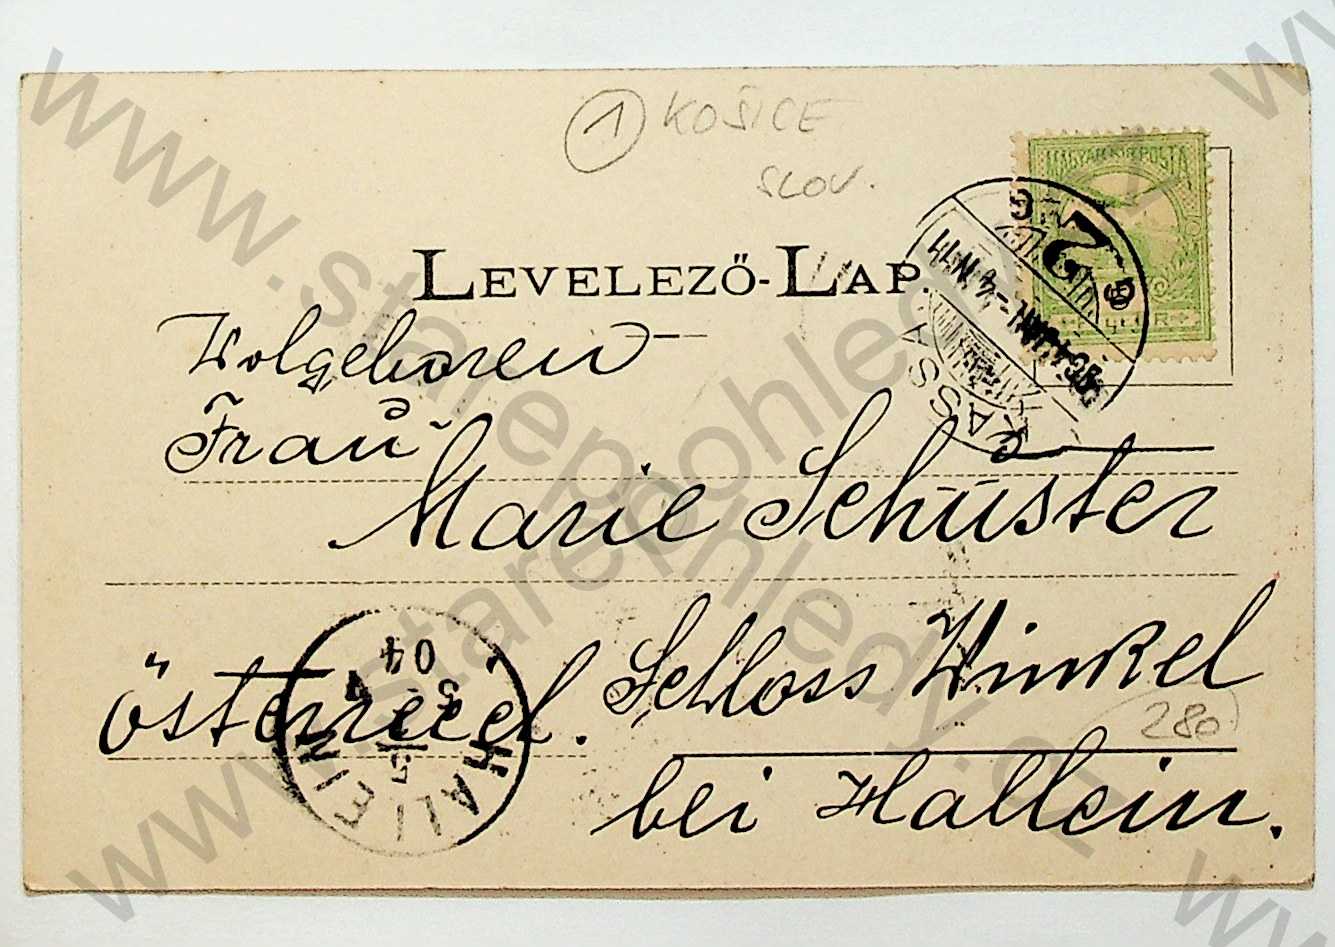 1 KOŠICE
SLOV.
MAGYAR KIR. POSTA
LEVELEZŐ-LAP.
904 JAN. -4 N 11
KASSA
2
Wolgeboren
Frau
Marie Schuster
Schloss Winkel
Österreich.
280
bei Hallein.
HALLEIN
04
www.starepohledy.cz
www.starepohledy.cz